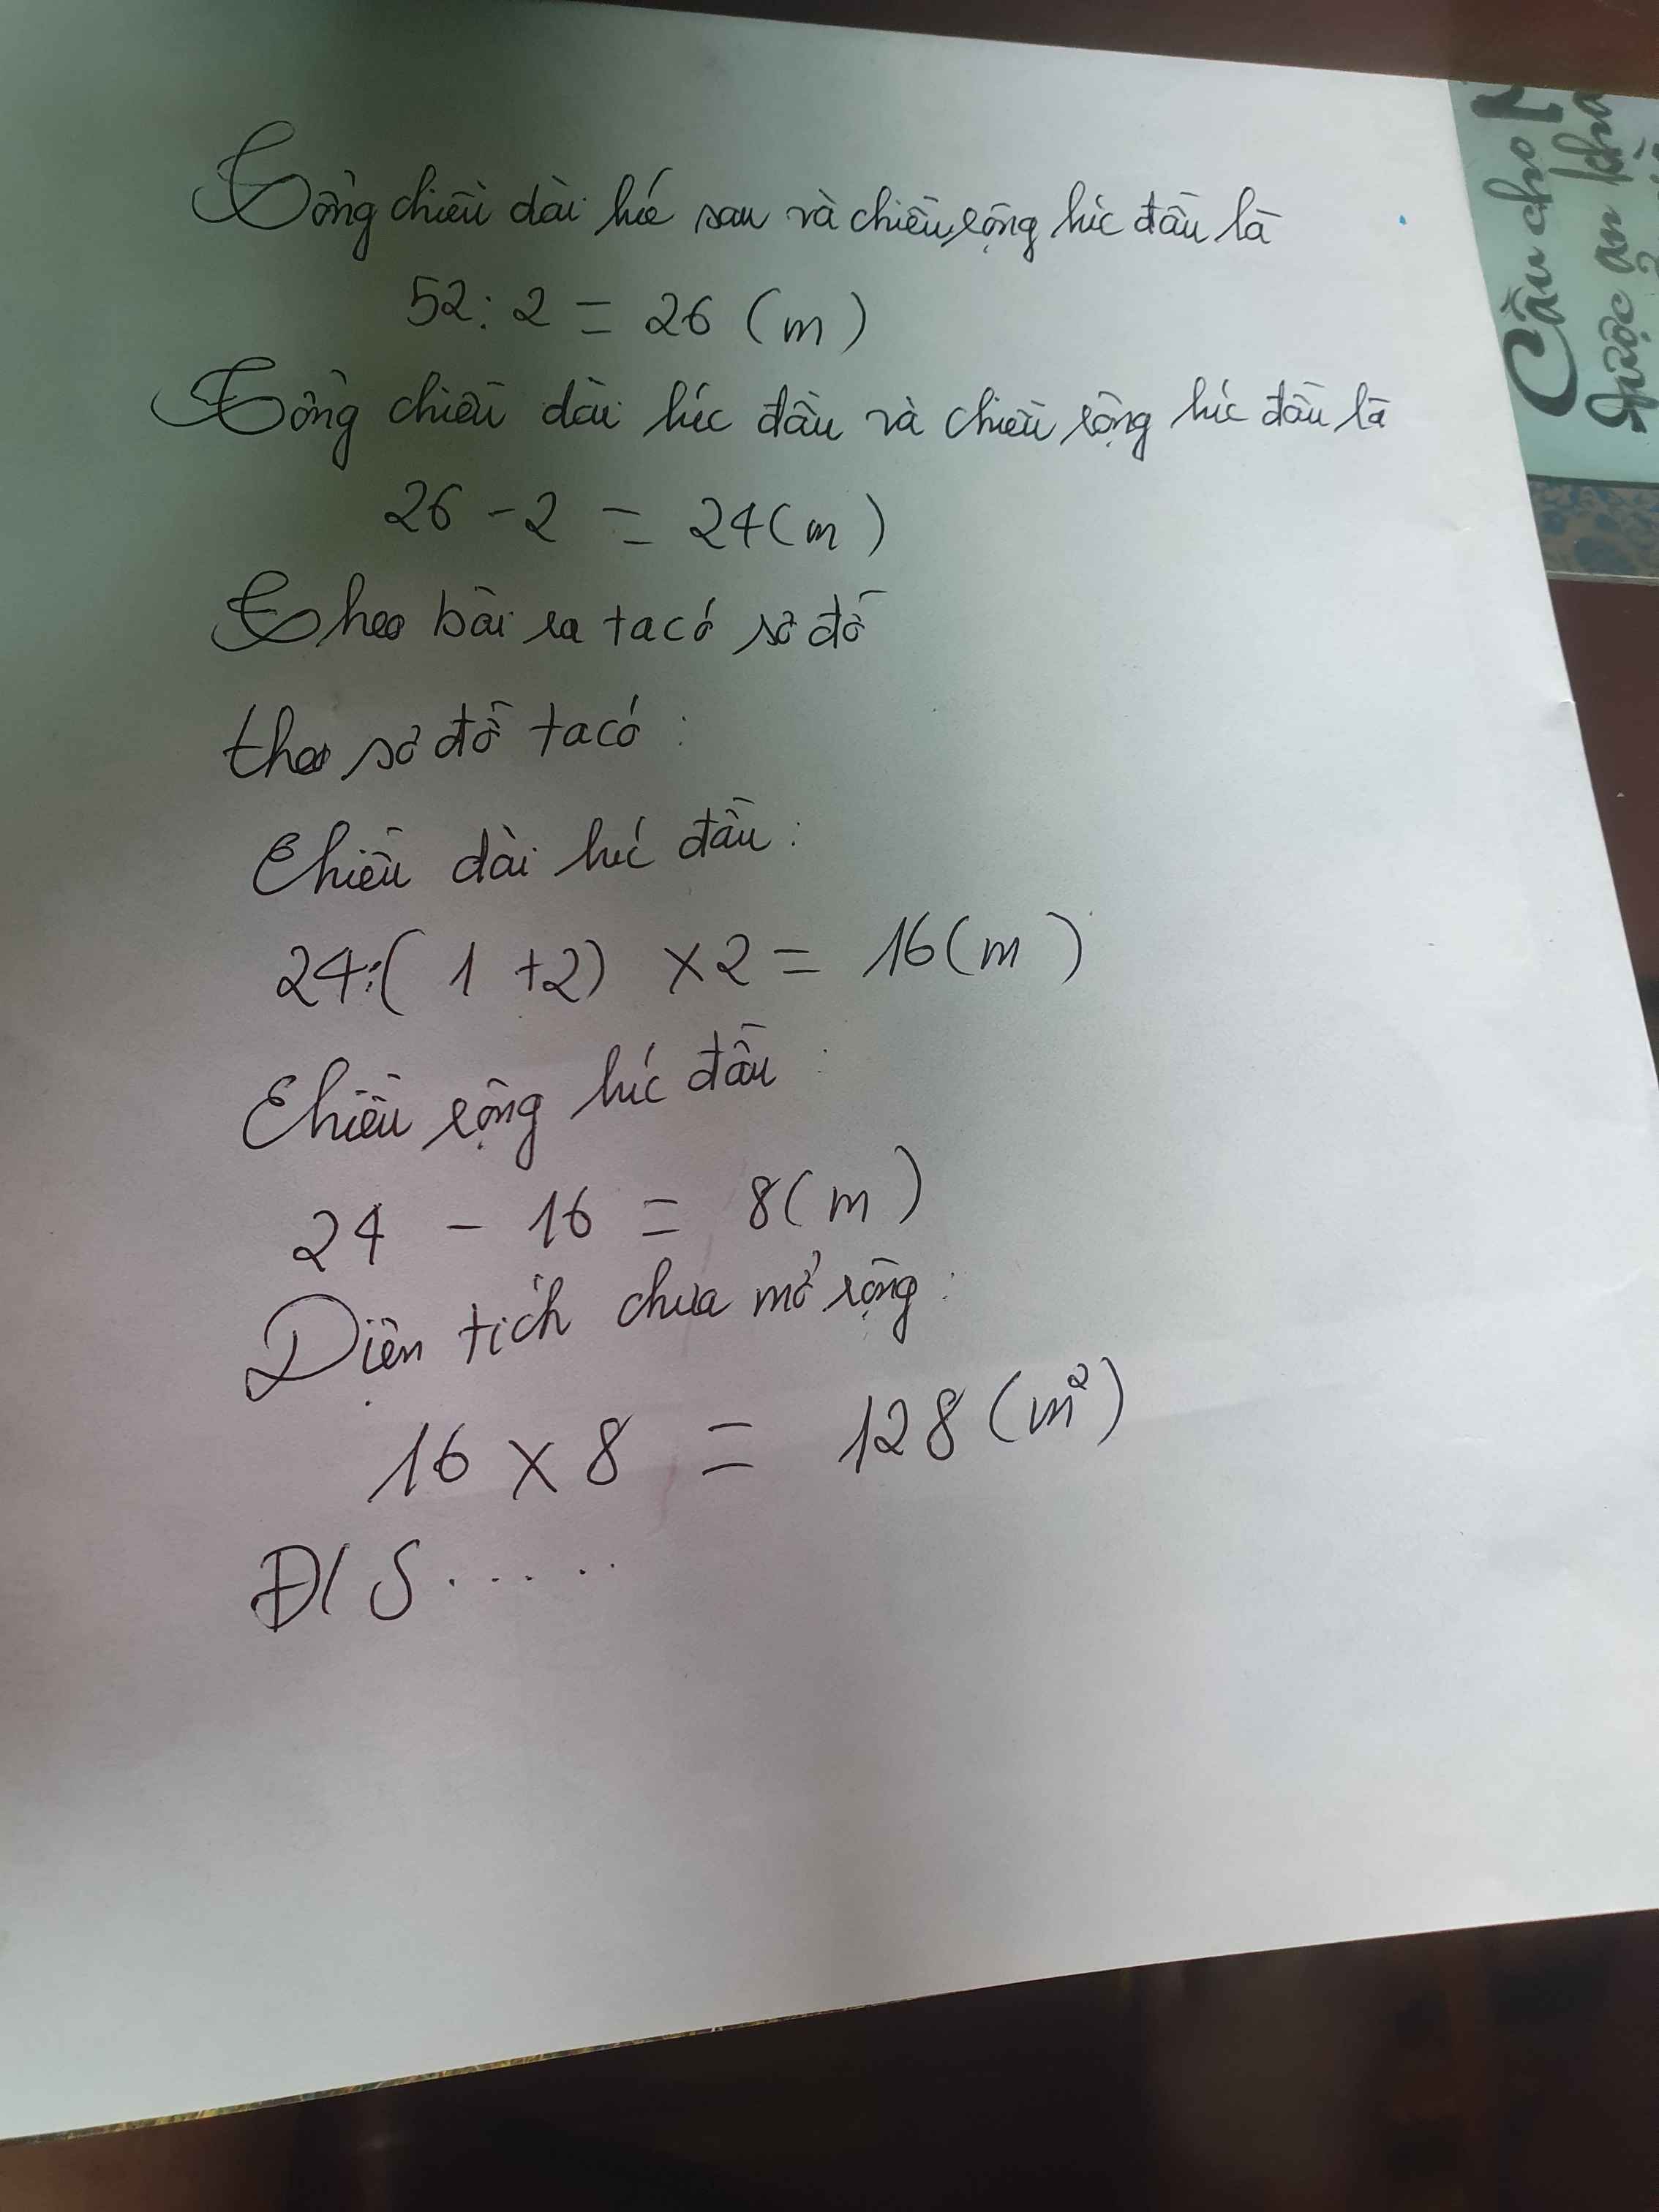 Tổng chiều dài lúc sau và chiều rộng lúc đầu là
52 : 2 = 26 (m)
Tổng chiều dài lúc đầu và chiều rộng lúc đầu là
26 - 2 = 24 (m)
Theo bài ra ta có sơ đồ
theo sơ đồ ta có :
Chiều dài lúc đầu :
24 : ( 1 + 2) × 2 = 16 (m)
Chiều rộng lúc đầu :
24 - 16 = 8 (m)
Diện tích chưa mở rộng :
16 × 8 = 128 (m²)
Đ/S .....
Cầu cho
được an